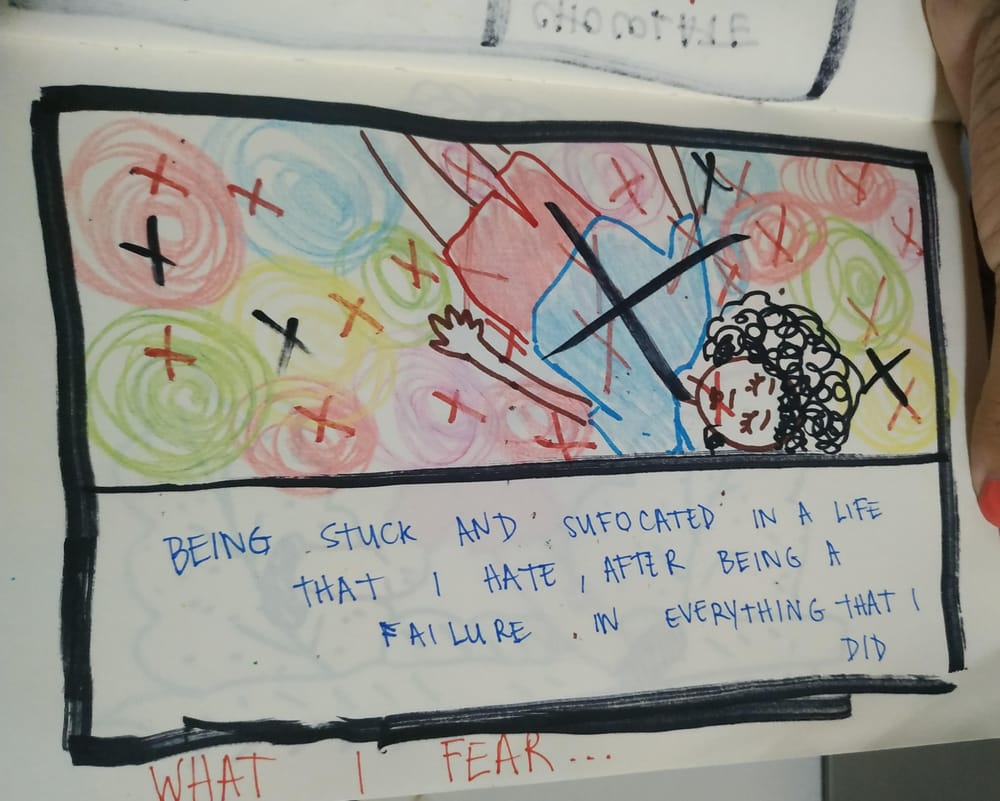 CHOCOLATE
BEING STUCK AND SUFOCATED IN A LIFE
THAT I HATE, AFTER BEING A
FAILURE IN EVERYTHING THAT I
DID
WHAT I FEAR...